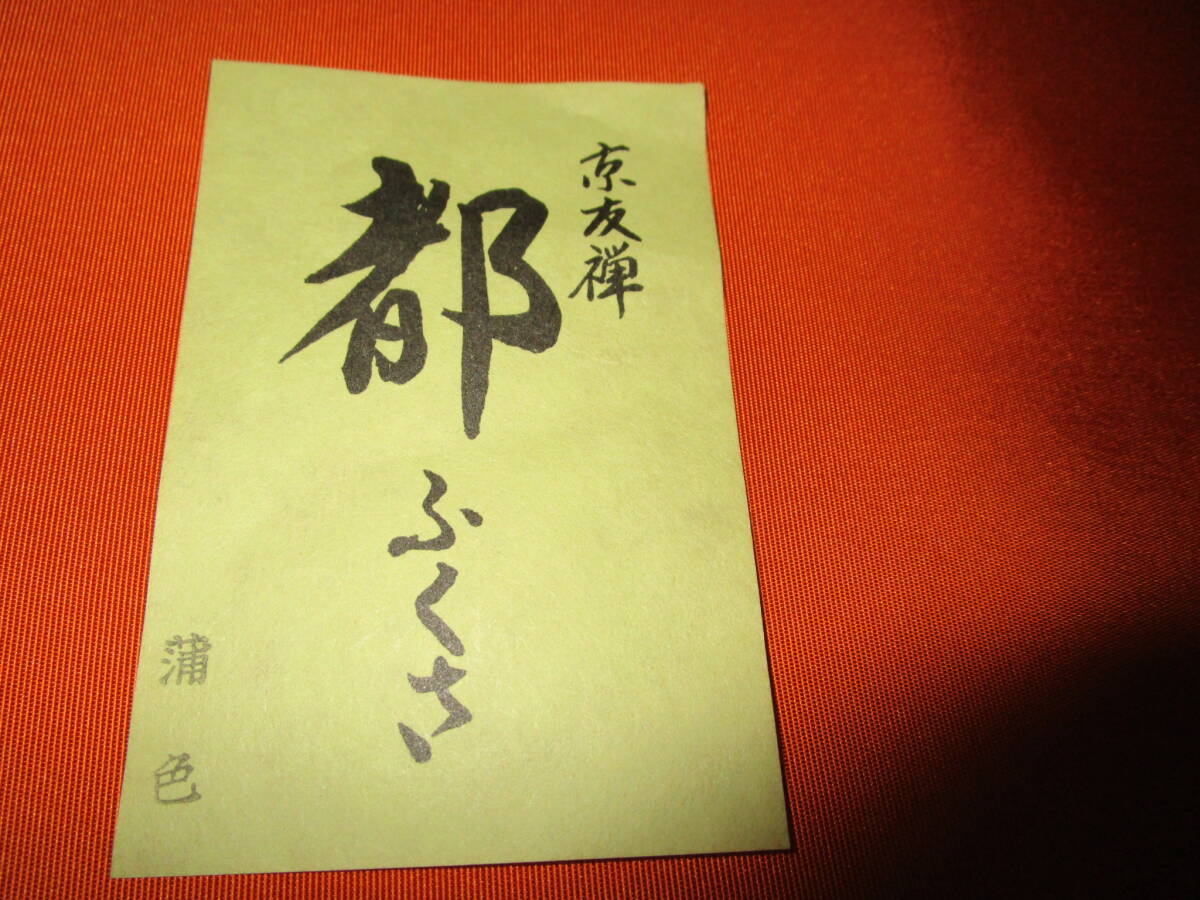 京友禅
都ふくさ
蒲色